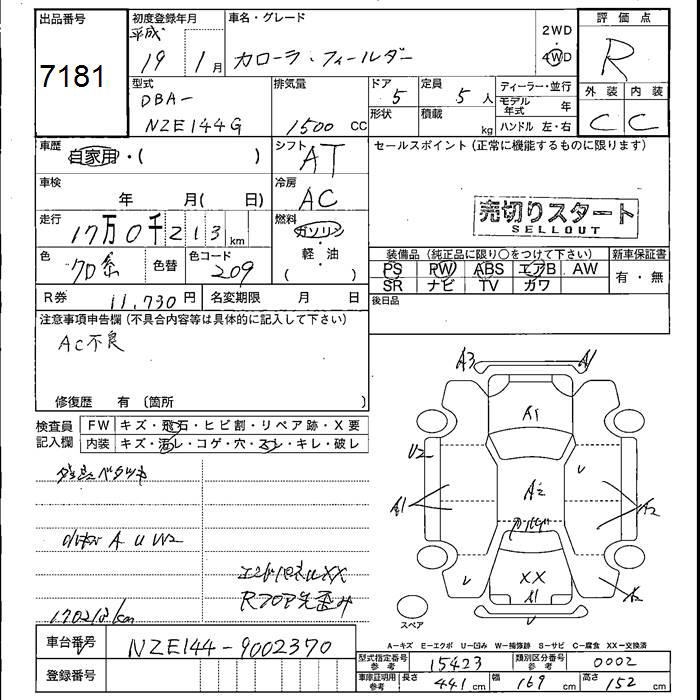 出品番号
7181
初度登録年月
平成
19 1月
車名・グレード
カローラ・フィールダー
2WD
4WD
評価点
R
外装 内装
C C
型式
DBA-
NZE144G
排気量
1500 cc
ドア
5
形状
定員
5人
積載
kg
ディーラー・並行
モデル年式 年
ハンドル 左・右
車歴
自家用・( )
シフト
AT
セールスポイント (正常に機能するものに限ります)
車検
年 月( 日)
冷房
AC
売切りスタート
SELLOUT
走行
17万0千213km
燃料
ガソリン
軽・油
( )
色
クロ系
色替
色コード
209
装備品 (純正品に限り○をつけて下さい)
新車保証書
PS PW ABS エアB AW
SR ナビ TV カワ
有・無
後日品
R券
11,730円
名変期限 月 日
注意事項申告欄 (不具合内容等は具体的に記入して下さい)
AC不良
修復歴 有 〔箇所 〕
検査員
記入欄
FW キズ・飛石・ヒビ割・リペア跡・X要
内装 キズ・汚レ・コゲ・穴・スレ・キレ・破レ
A U W2
エンドパネルXX
Rフロア先歪み
170213km
A3
A1
A1
U2
U
A1
A2
A2
U
XX
A1
A2
スペア
車台番号
NZE144-9002370
登録番号
A-キズ E-エクボ U-凹み W-補修跡 S-サビ C-腐食 XX-交換済
型式指定番号
参考
15423
類別区分番号
参考
0002
車庫証明用
参考
長さ 441cm
幅 169cm
高さ 152cm